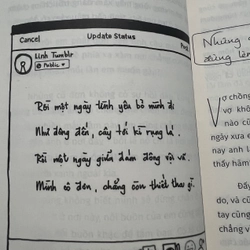 Cancel
Update Status
Post
Linh Tumblr
Public
Rồi một ngày tình yêu bỏ mình đi
Như đông đến, cây tới kì rụng lá.
Rồi một ngày giữa đám đông vội vã
Mình cô đơn, chẳng còn thiết tha gì.
Những
đừng làm
Vợ chồng
vợ khôn
nào cũ
ngày xưa
nay anh l
thấy hàm
Để
do, và cũ
tay cũng
chẳng v